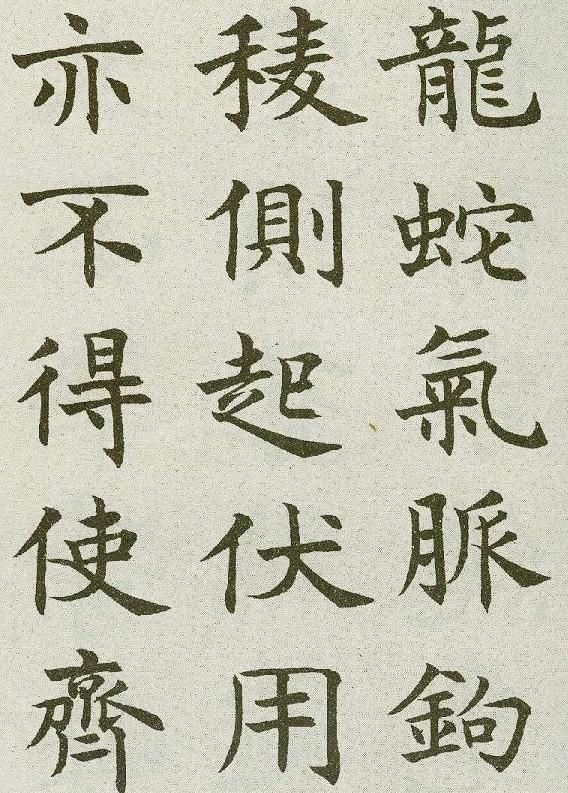 龍蛇氣脈鉤
稜側起伏用
亦不得使齊